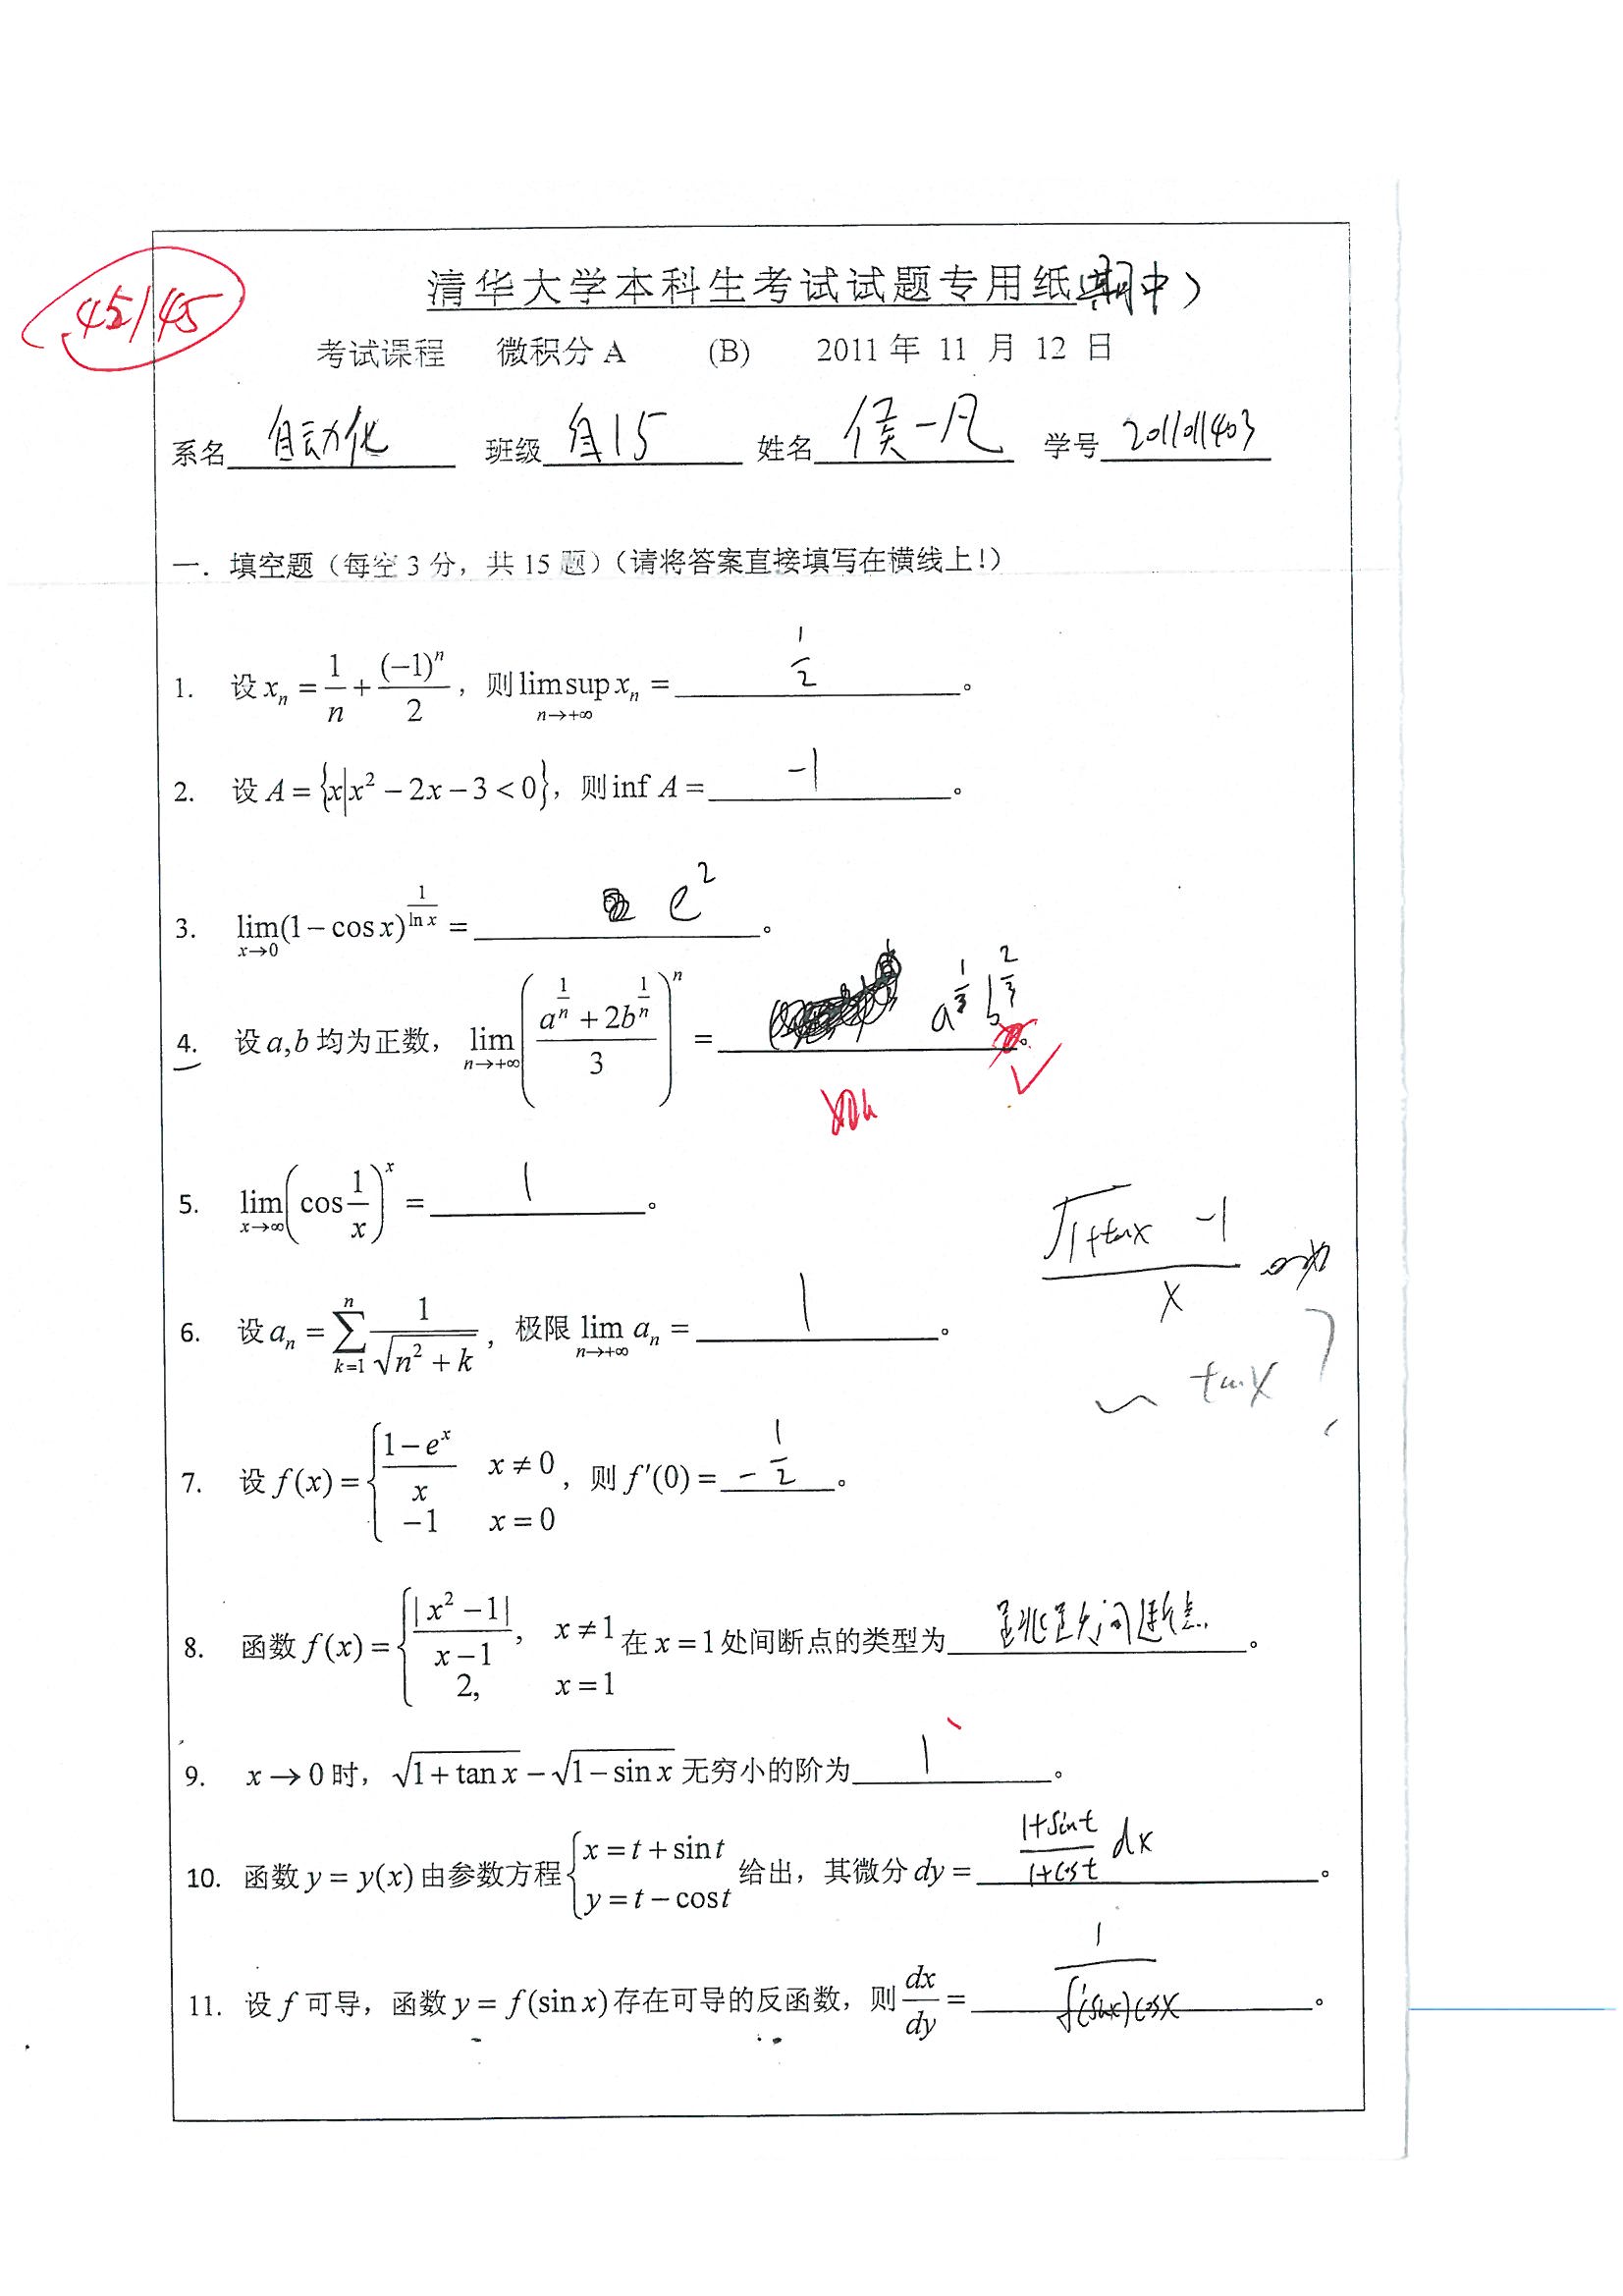 清华大学本科生考试试题专用纸(期中)
45/45
考试课程 微积分 A (B) 2011 年 11 月 12 日
系名 自动化 班级 自15 姓名 侯一凡 学号 2011011403
一. 填空题(每空 3 分,共 15 题)(请将答案直接填写在横线上!)
1. 设 $x_n = \frac{1}{n} + \frac{(-1)^n}{2}$,则 $\limsup_{n\to+\infty} x_n =$ $\frac{1}{2}$ 。
2. 设 $A = \{x | x^2 - 2x - 3 < 0\}$,则 $\inf A =$ $-1$ 。
3. $\lim_{x\to 0} (1 - \cos x)^{\frac{1}{\ln x}} =$ $e^2$ 。
4. 设 $a,b$ 均为正数, $\lim_{n\to+\infty} \left( \frac{a^{\frac{1}{n}} + 2b^{\frac{1}{n}}}{3} \right)^n =$ $a^{\frac{1}{3}} b^{\frac{2}{3}}$ 。
5. $\lim_{x\to\infty} \left( \cos \frac{1}{x} \right)^x =$ $1$ 。
$\frac{\sqrt{1+\tan x} - 1}{x}$
6. 设 $a_n = \sum_{k=1}^{n} \frac{1}{\sqrt{n^2 + k}}$,极限 $\lim_{n\to+\infty} a_n =$ $1$ 。
$\sim \tan x$
7. 设 $f(x) = \begin{cases} \frac{1-e^x}{x} & x \neq 0 \\ -1 & x = 0 \end{cases}$,则 $f'(0) =$ $-\frac{1}{2}$ 。
8. 函数 $f(x) = \begin{cases} \frac{|x^2-1|}{x-1}, & x \neq 1 \\ 2, & x = 1 \end{cases}$ 在 $x = 1$ 处间断点的类型为 跳跃间断点 。
9. $x \to 0$ 时, $\sqrt{1+\tan x} - \sqrt{1-\sin x}$ 无穷小的阶为 1 。
10. 函数 $y = y(x)$ 由参数方程 $\begin{cases} x = t + \sin t \\ y = t - \cos t \end{cases}$ 给出,其微分 $dy =$ $\frac{1+\sin t}{1+\cos t} dx$ 。
11. 设 $f$ 可导,函数 $y = f(\sin x)$ 存在可导的反函数,则 $\frac{dx}{dy} =$ $\frac{1}{f'(\sin x)\cos x}$ 。